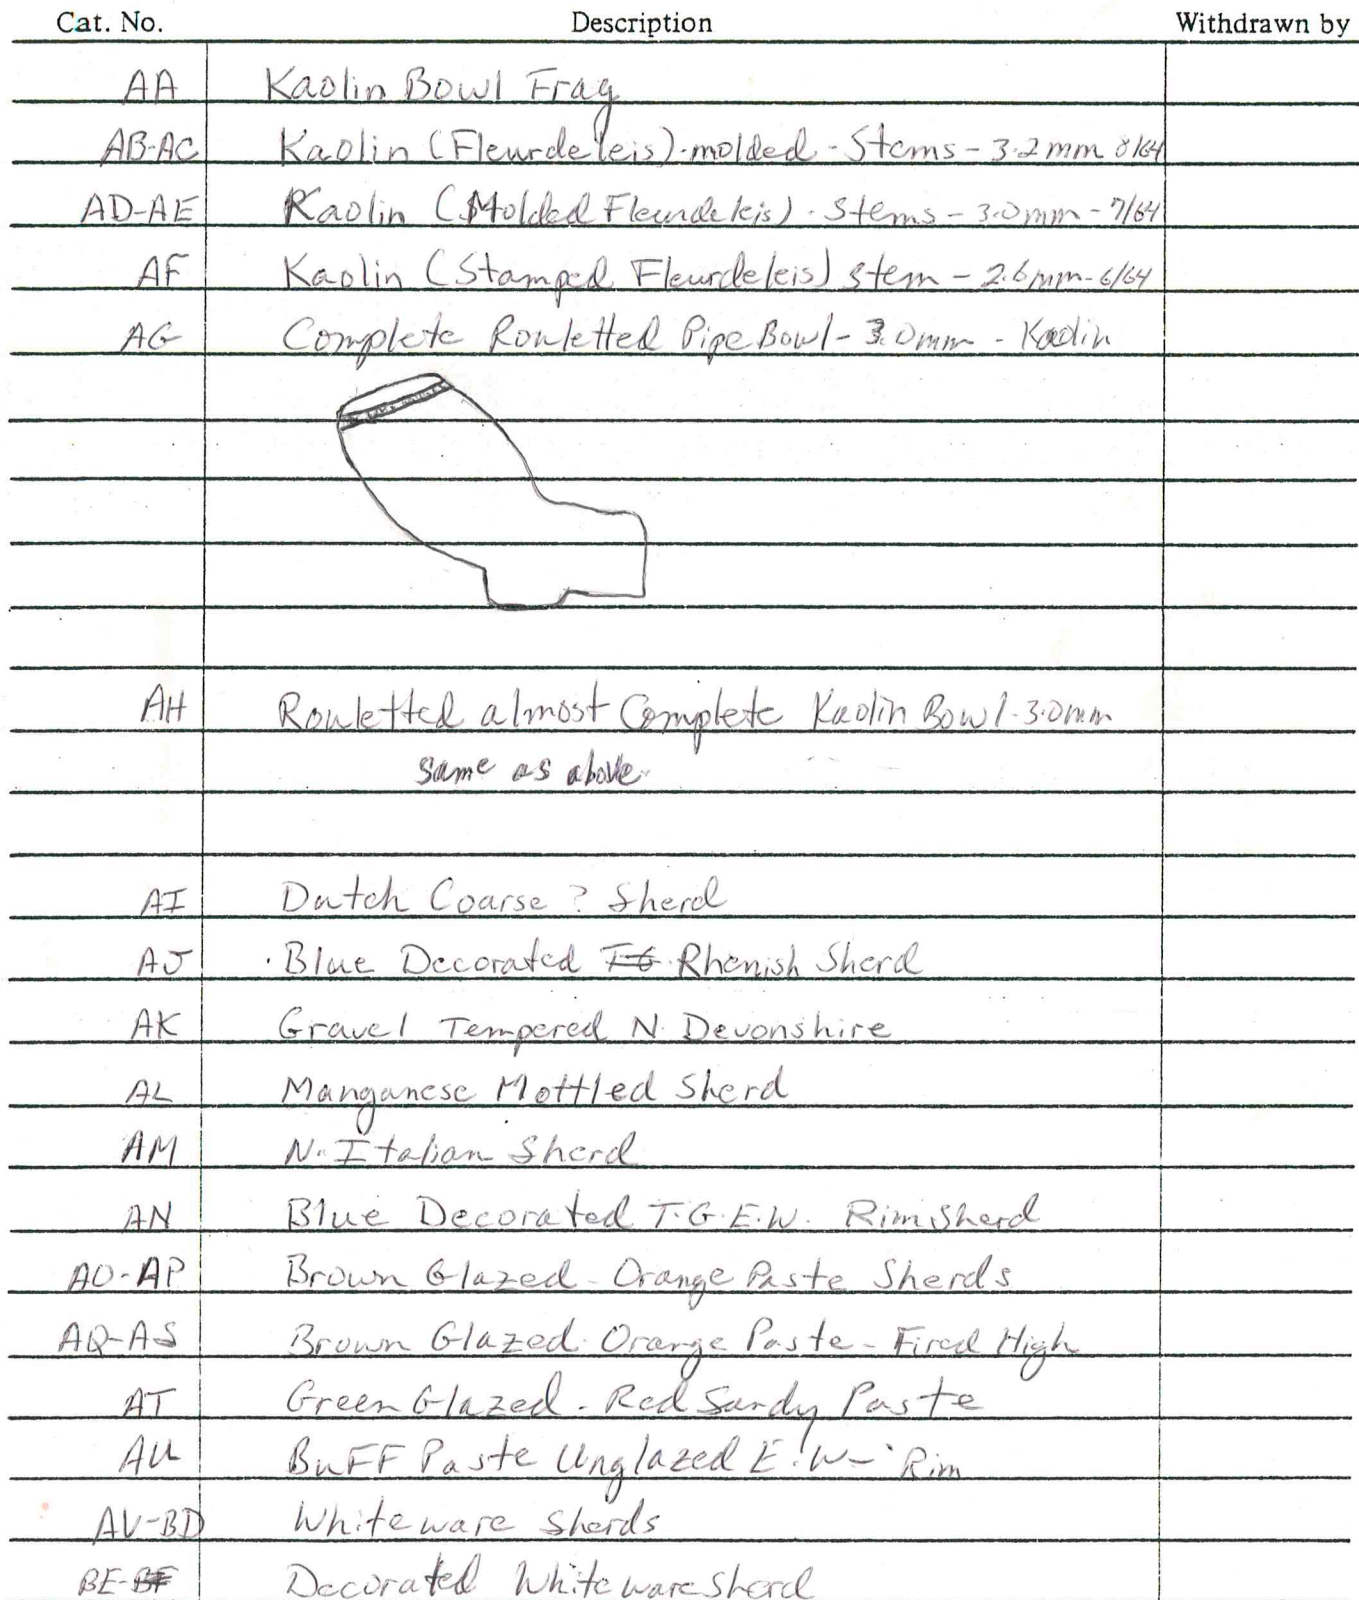 Cat. No. Description Withdrawn by
AA Kaolin Bowl Frag
AB-AC Kaolin (Fleurdeleis)-molded - Stems - 3.2mm 8/64
AD-AE Kaolin (Molded Fleurdeleis) - Stems - 3.0mm - 7/64
AF Kaolin (Stamped Fleurdeleis) stem - 2.6mm - 6/64
AG Complete Rouletted Pipe Bowl - 3.0mm - Kaolin
AH Rouletted almost Complete Kaolin Bowl - 3.0mm
same as above
AI Dutch Coarse ? Sherd
AJ Blue Decorated Rhenish Sherd
AK Gravel Tempered N. Devonshire
AL Manganese Mottled Sherd
AM N. Italian Sherd
AN Blue Decorated T.G.E.W. Rim Sherd
AO-AP Brown Glazed - Orange Paste Sherds
AQ-AS Brown Glazed - Orange Paste - Fired High
AT Green Glazed - Red Sandy Paste
AU Buff Paste Unglazed E.W - Rim
AV-BD Whiteware Sherds
BE- Decorated Whiteware Sherd